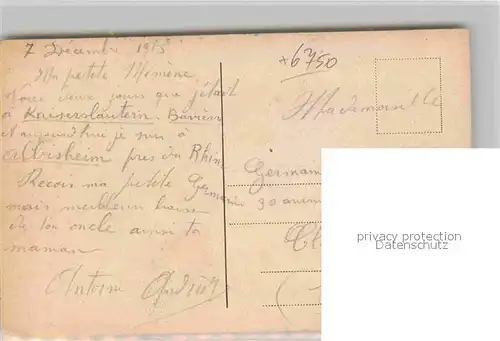 7 Décembre 1918
Ma petite Mimène
deux jours que j'étais
à Kaiserslautern. Bavière
et aujourd'hui je suis à
Albisheim près du Rhin
Reçois ma petite Germaine
mais meilleurs baisers
de ton oncle ainsi ta
maman
Antoine
+6750
Mademoiselle
Germain
30
privacy protection
Datenschutz